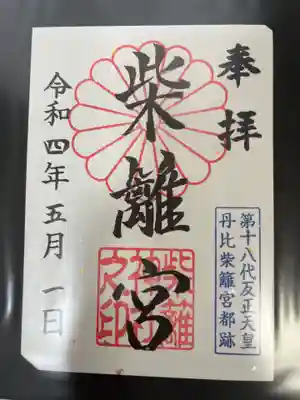 奉拝
第十八代反正天皇
丹比柴籬宮都跡
柴籬宮
柴籬
神社
之印
令和四年五月一日